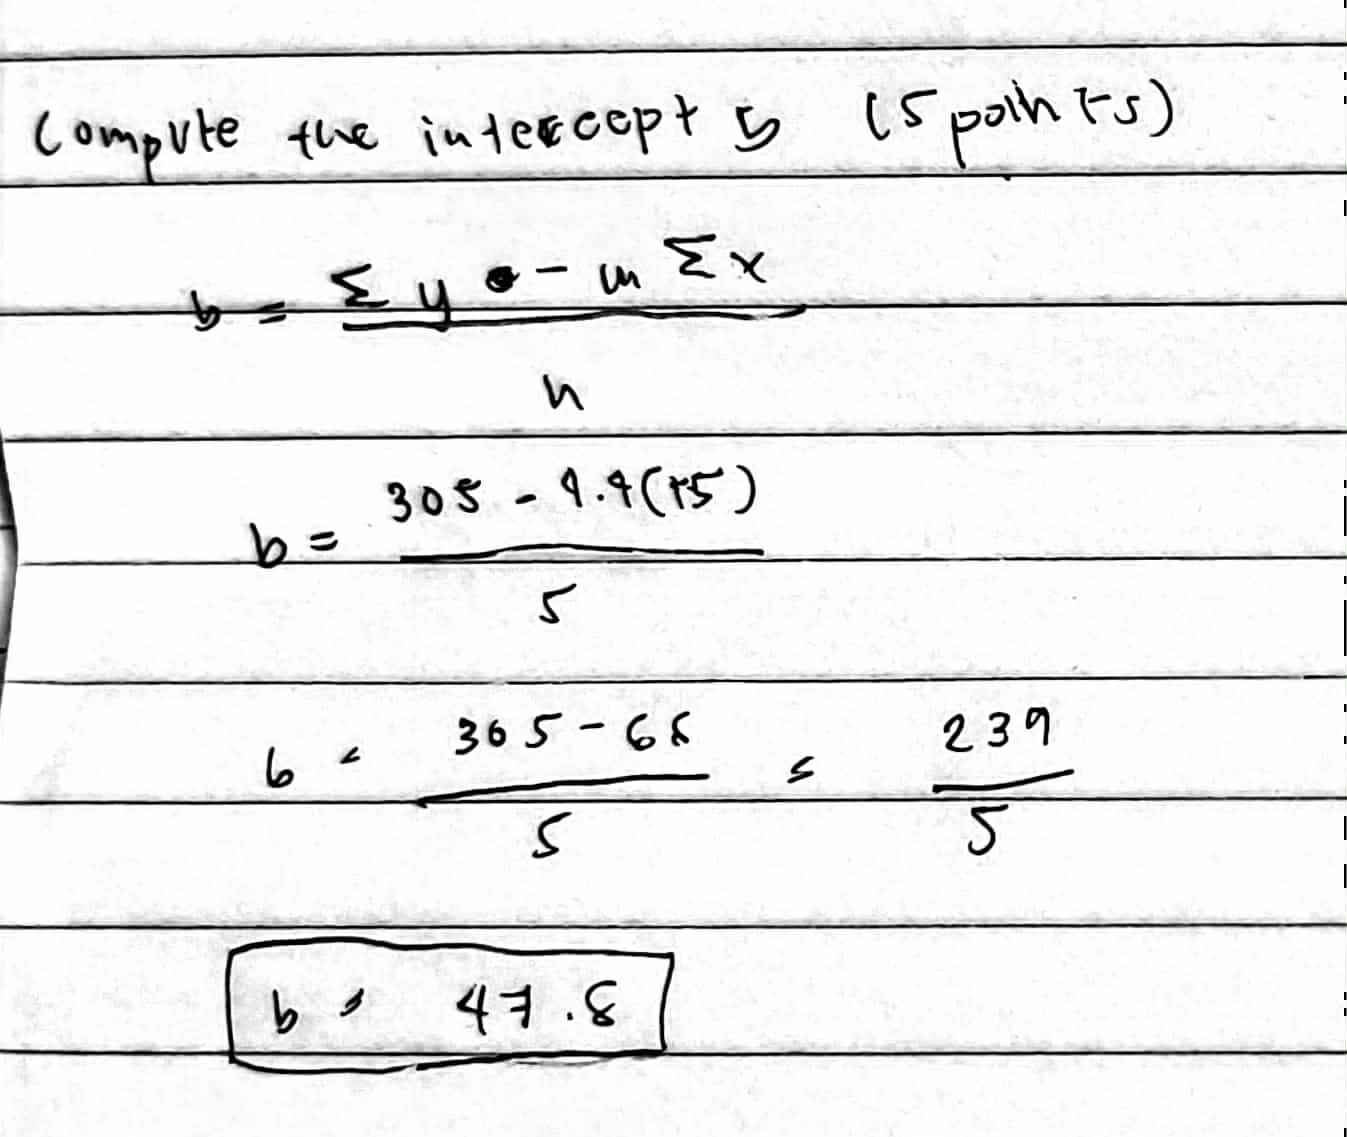 Compute the intercept b (5 points)
b = Σy - mΣx
n
b = 305 - 4.4(15)
5
b = 305 - 66 = 239
5 5
b = 47.8